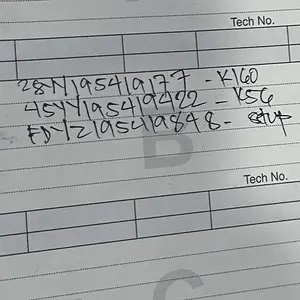 Tech No.
28N195419177 - K160
45YY195419422 - K56
FDYZ195419848 - setup
B
Tech No.
C